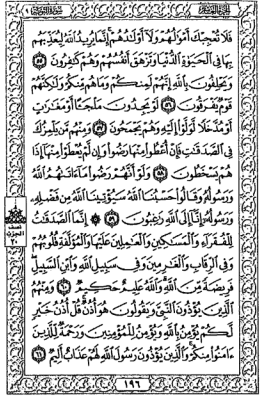 الجزء العاشر سورة التوبة ٩
فَلَا تُعْجِبْكَ أَمْوَٰلُهُمْ وَلَآ أَوْلَٰدُهُمْ إِنَّمَا يُرِيدُ ٱللَّهُ لِيُعَذِّبَهُم
بِهَا فِى ٱلْحَيَوٰةِ ٱلدُّنْيَا وَتَزْهَقَ أَنفُسُهُمْ وَهُمْ كَٰفِرُونَ ٥٥
وَيَحْلِفُونَ بِٱللَّهِ إِنَّهُمْ لَمِنكُمْ وَمَا هُم مِّنكُمْ وَلَٰكِنَّهُمْ
قَوْمٌ يَفْرَقُونَ ٥٦ لَوْ يَجِدُونَ مَلْجَـًٔا أَوْ مَغَٰرَٰتٍ
أَوْ مُدَّخَلًا لَّوَلَّوْا۟ إِلَيْهِ وَهُمْ يَجْمَحُونَ ٥٧ وَمِنْهُم مَّن يَلْمِزُكَ
فِى ٱلصَّدَقَٰتِ فَإِنْ أُعْطُوا۟ مِنْهَا رَضُوا۟ وَإِن لَّمْ يُعْطَوْا۟ مِنْهَآ إِذَا
هُمْ يَسْخَطُونَ ٥٨ وَلَوْ أَنَّهُمْ رَضُوا۟ مَآ ءَاتَىٰهُمُ ٱللَّهُ
وَرَسُولُهُۥ وَقَالُوا۟ حَسْبُنَا ٱللَّهُ سَيُؤْتِينَا ٱللَّهُ مِن فَضْلِهِۦ
وَرَسُولُهُۥٓ إِنَّآ إِلَى ٱللَّهِ رَٰغِبُونَ ٥٩ إِنَّمَا ٱلصَّدَقَٰتُ
نصف الحزب ٢٠
لِلْفُقَرَآءِ وَٱلْمَسَٰكِينِ وَٱلْعَٰمِلِينَ عَلَيْهَا وَٱلْمُؤَلَّفَةِ قُلُوبُهُمْ
وَفِى ٱلرِّقَابِ وَٱلْغَٰرِمِينَ وَفِى سَبِيلِ ٱللَّهِ وَٱبْنِ ٱلسَّبِيلِ
فَرِيضَةً مِّنَ ٱللَّهِ وَٱللَّهُ عَلِيمٌ حَكِيمٌ ٦٠ وَمِنْهُمُ
ٱلَّذِينَ يُؤْذُونَ ٱلنَّبِىَّ وَيَقُولُونَ هُوَ أُذُنٌ قُلْ أُذُنُ خَيْرٍ
لَّكُمْ يُؤْمِنُ بِٱللَّهِ وَيُؤْمِنُ لِلْمُؤْمِنِينَ وَرَحْمَةٌ لِّلَّذِينَ
ءَامَنُوا۟ مِنكُمْ وَٱلَّذِينَ يُؤْذُونَ رَسُولَ ٱللَّهِ لَهُمْ عَذَابٌ أَلِيمٌ ٦١
١٩٦